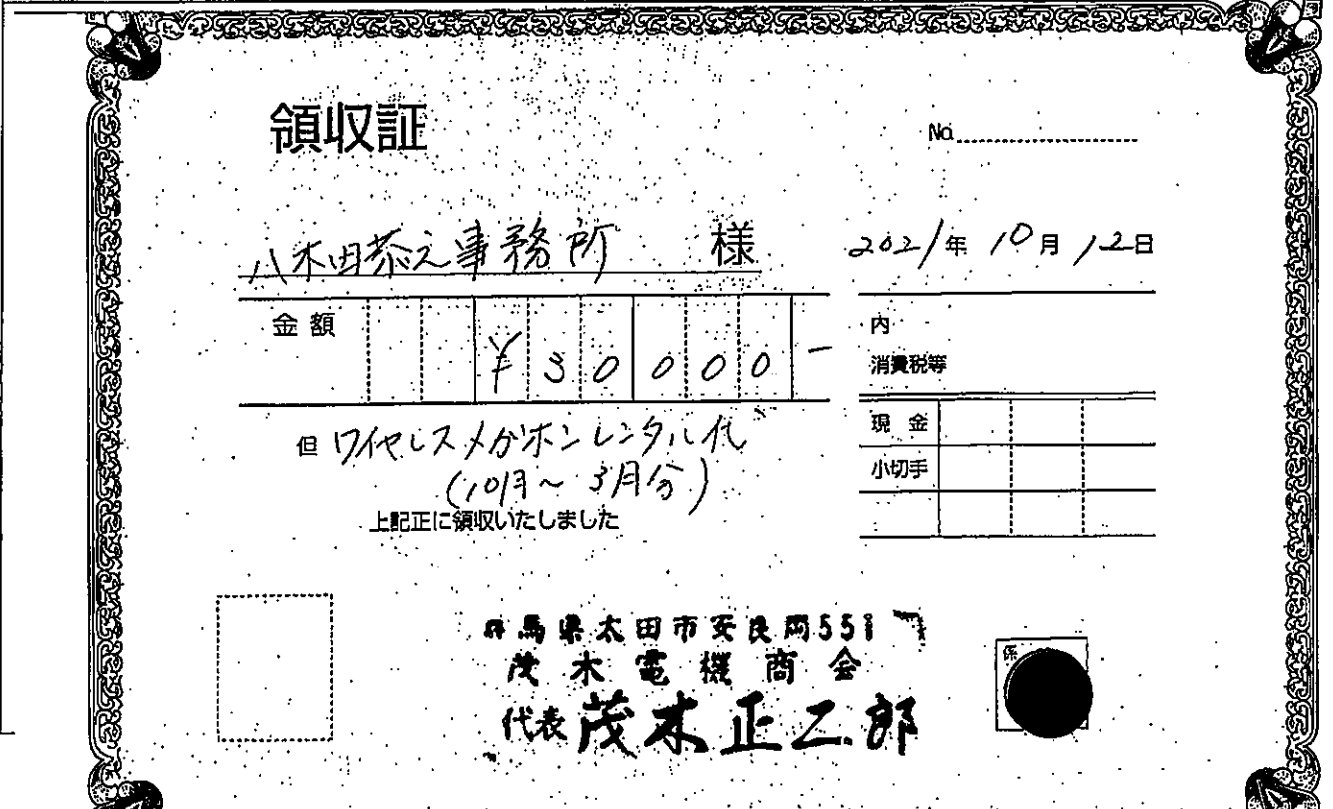 領収証
No.
八木田恭之事務所 様
2021年 10月 12日
金額 ¥30000-
内
消費税等
現金
小切手
但 ワイヤレスメガホンレンタル代
(10月～3月分)
上記正に領収いたしました
群馬県太田市安良岡551
茂木電機商会
代表 茂木正二郎
係